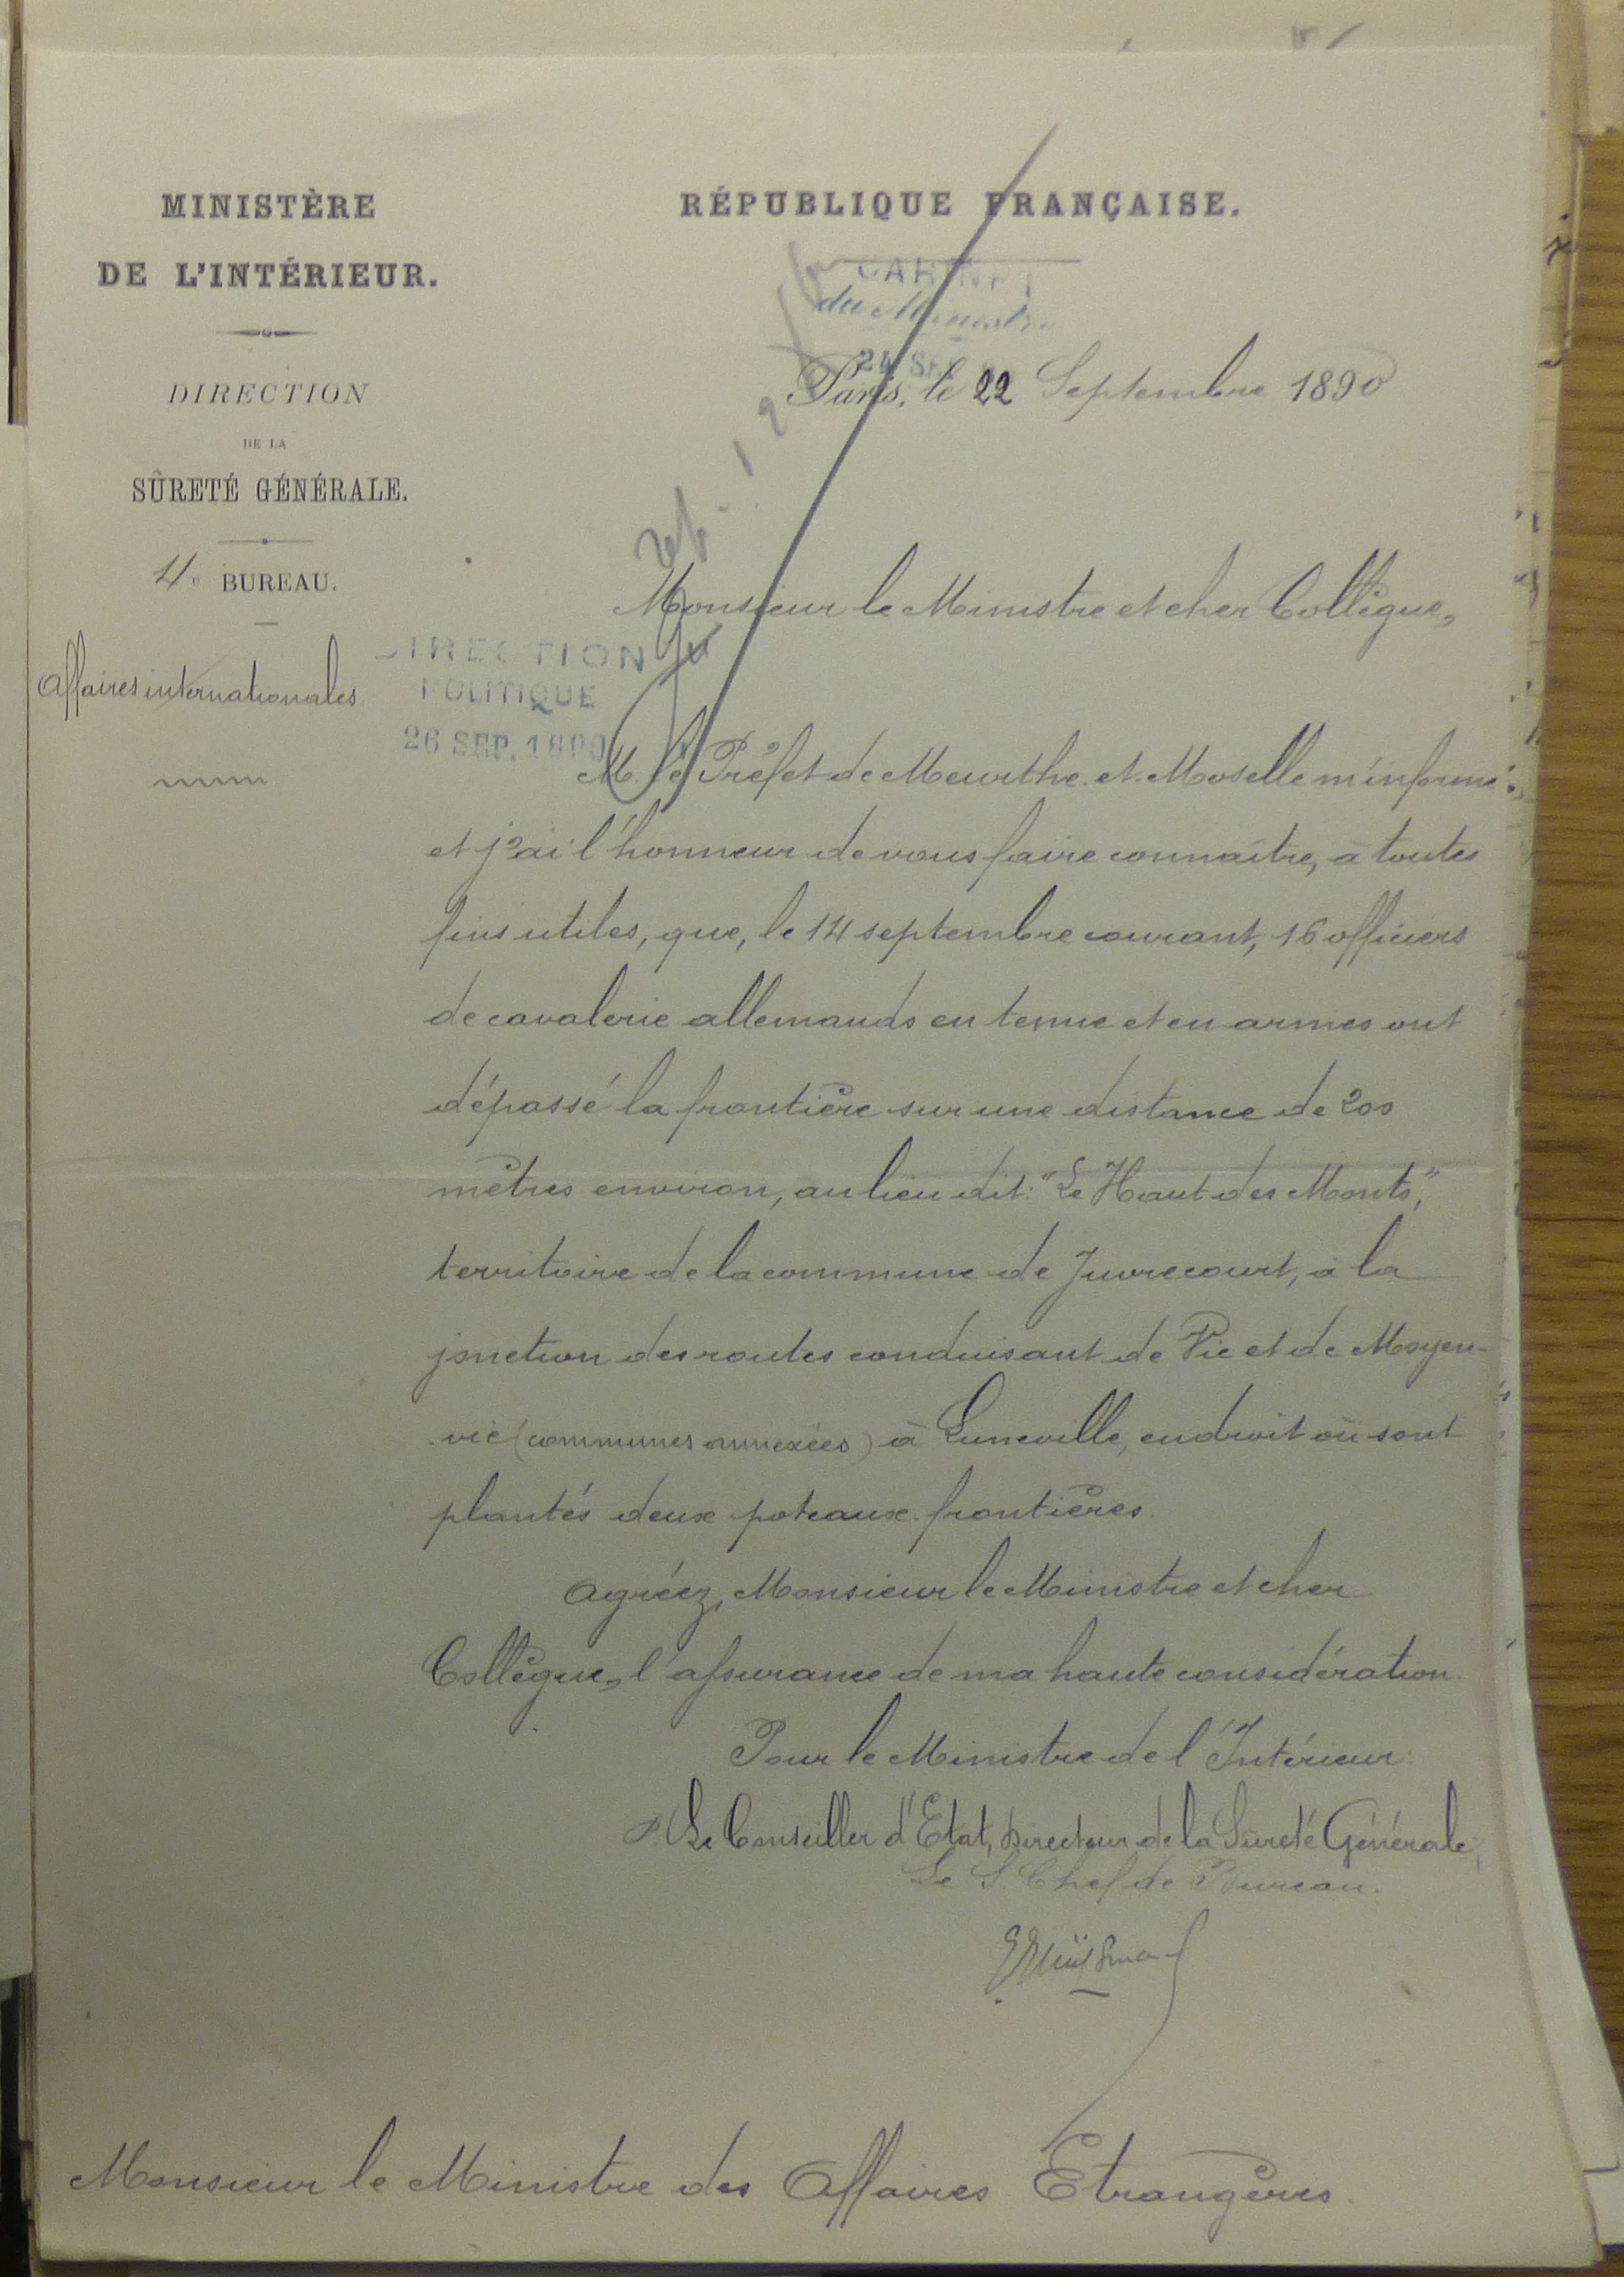 MINISTÈRE
DE L'INTÉRIEUR.
DIRECTION
DE LA
SÛRETÉ GÉNÉRALE.
4e BUREAU.
Affaires internationales
RÉPUBLIQUE FRANÇAISE.
CABINET
du Ministre
24 SEP
Paris, le 22 Septembre 1890
Monsieur le Ministre et cher Collègue,
DIRECTION
POLITIQUE
26 SEP. 1890
M. le Préfet de Meurthe et Moselle m'informe
et j'ai l'honneur de vous faire connaître, à toutes
fins utiles, que, le 14 septembre courant, 16 officiers
de cavalerie allemands en tenue et en armes ont
dépassé la frontière sur une distance de 200
mètres environ, au lieu dit: "Le Haut des Monts",
territoire de la commune de Juvrecourt, à la
jonction des routes conduisant de Vic et de Moyen-
vic (communes annexées) à Luneville, endroit où sont
plantés deux poteaux frontières.
Agréez, Monsieur le Ministre et cher
Collègue, l'assurance de ma haute considération.
Pour le Ministre de l'Intérieur:
P. Le Conseiller d'Etat, Directeur de la Sûreté Générale,
Le S. Chef de Bureau.
Monsieur le Ministre des Affaires Etrangères.